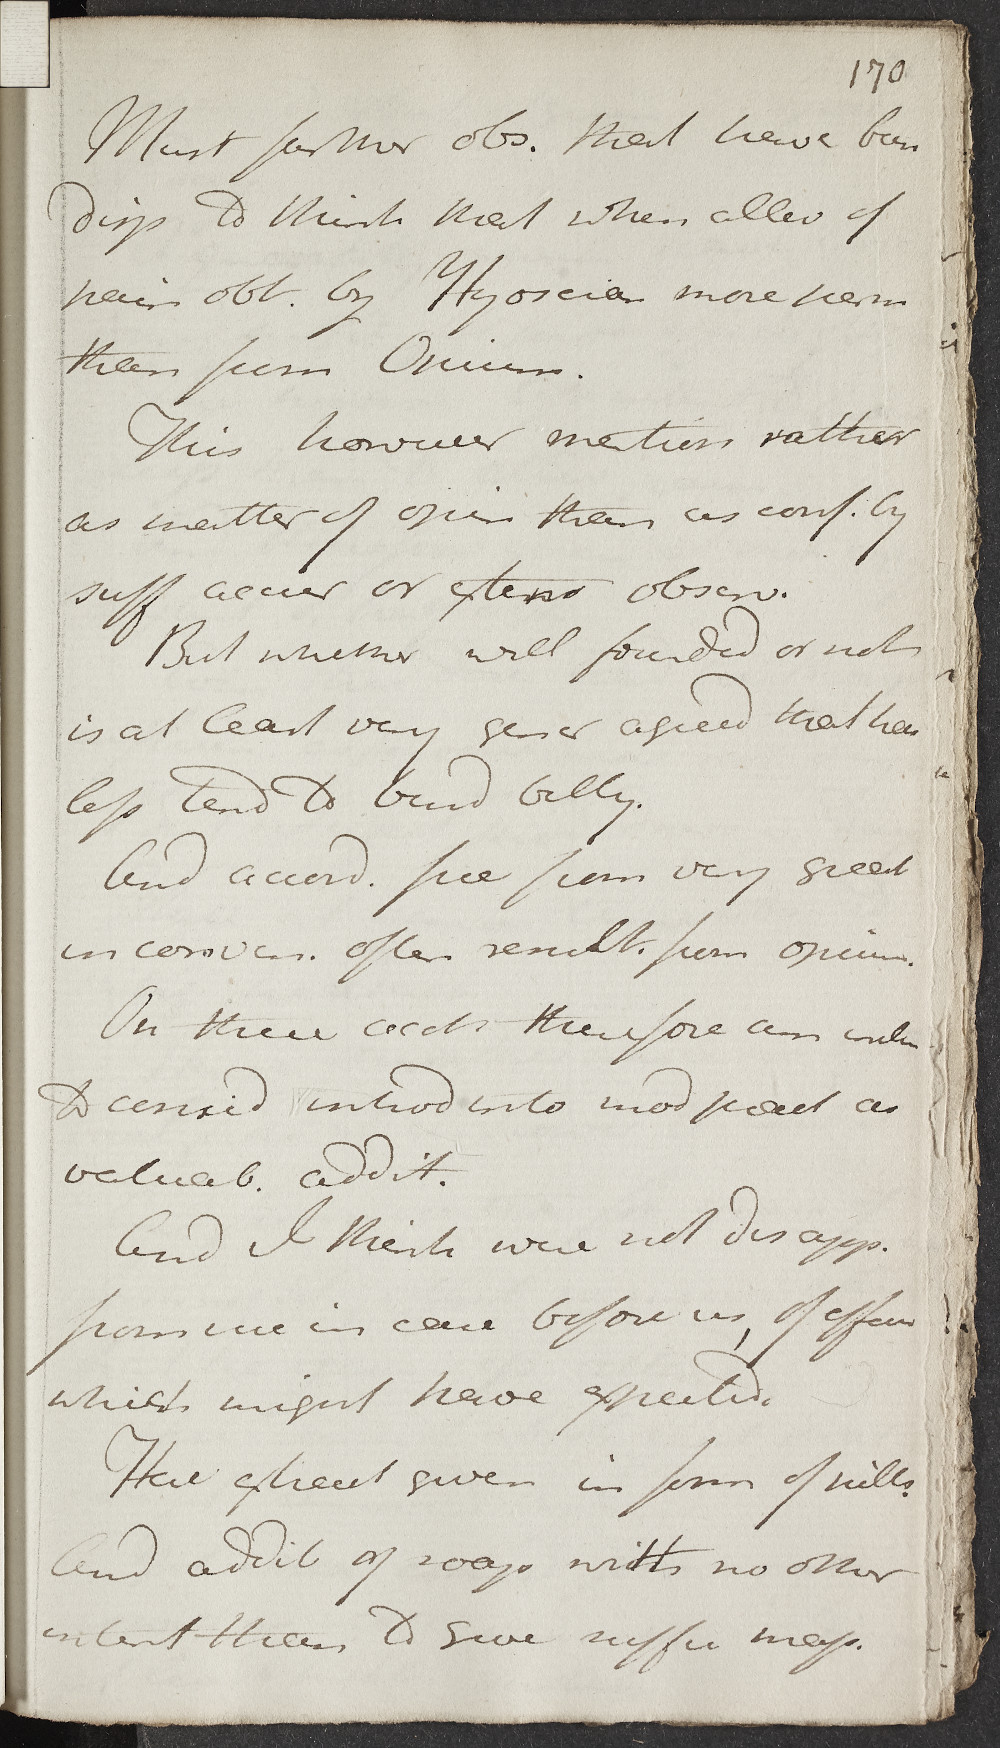 170
Must farther obs. that have been
disp to think that when allev of
pain obt. by Hyosciam more perm
than from Opium.
This however mention rather
as matter of opin than as conf. by
suff accur or extens observ.
But whether well founded or not
is at least very gener agreed that has
less tend to bind belly.
And accord. free from very great
inconven. often result. from opium.
On these accts therefore am inclin
to consid introd into mod pract as
valuab. addit.
And I think were not disapp.
from use in case before us, of effects
which might have expected.
Here extract given in form of pills.
And addit of soap with no other
intent than to give suffic mass.